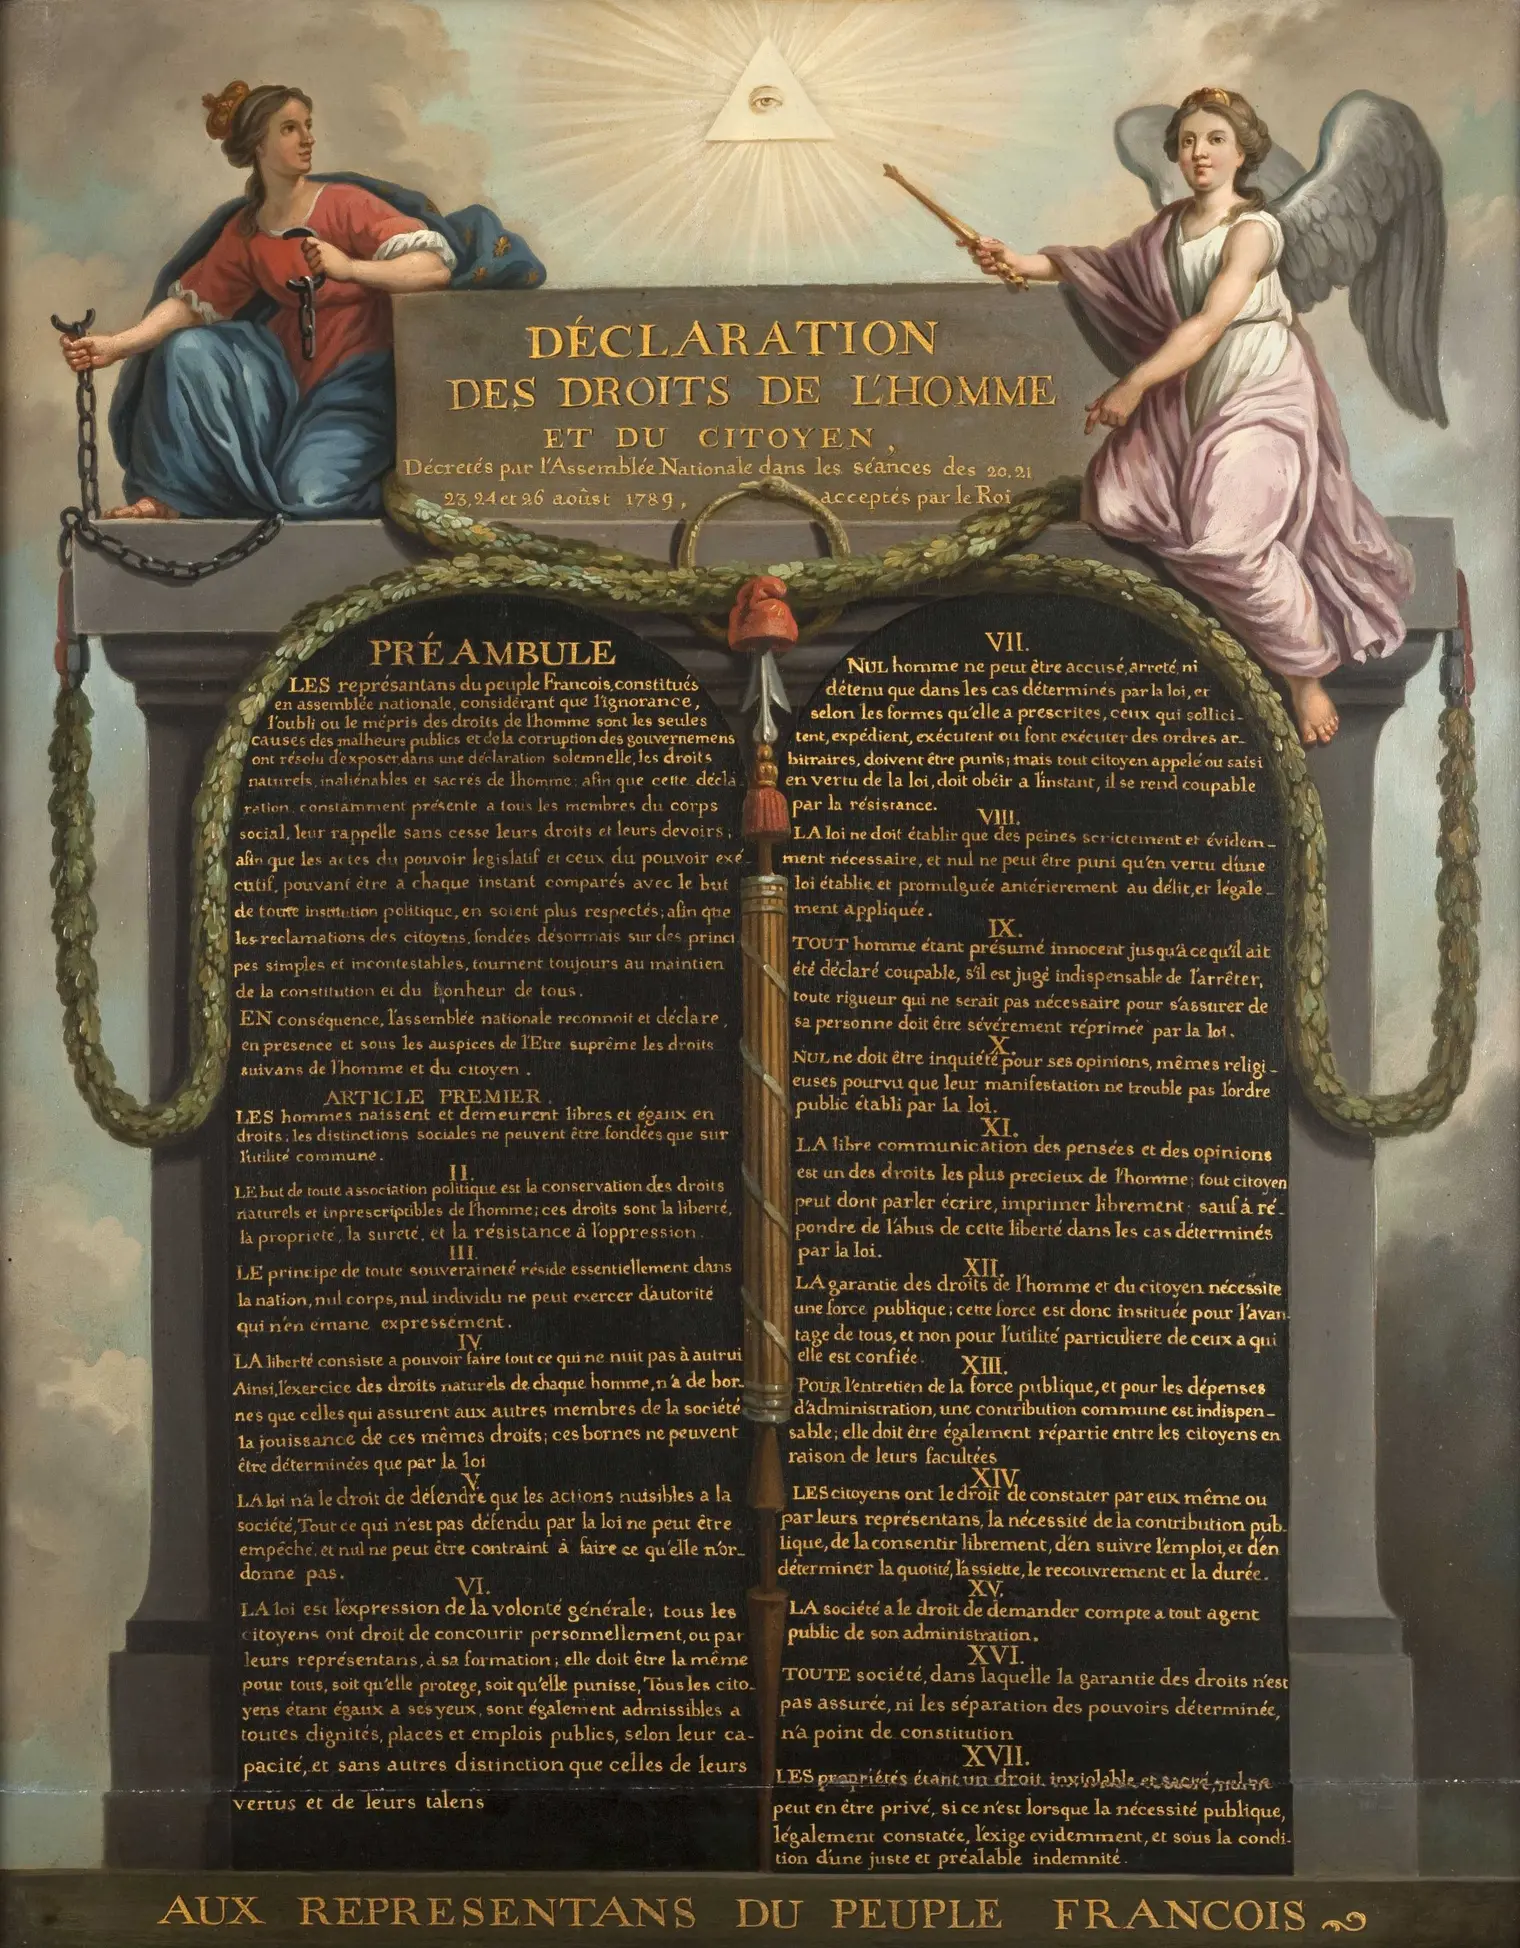 DÉCLARATION
DES DROITS DE L'HOMME
ET DU CITOYEN,
Décretés par l'Assemblée Nationale dans les séances des 20, 21
23, 24 et 26 aoûst 1789, acceptés par le Roi
PRÉAMBULE
LES représantans du peuple Francois, constitués
en assemblée nationale, considérant que l'ignorance,
l'oubli ou le mépris des droits de l'homme sont les seules
causes des malheurs publics et de la corruption des gouvernemens
ont résolu d'exposer, dans une déclaration solemnelle, les droits
naturels, inaliénables et sacrés de l'homme; afin que cette décla
ration, constamment présente a tous les membres du corps
social, leur rappelle sans cesse leurs droits et leurs devoirs;
afin que les actes du pouvoir legislatif et ceux du pouvoir exé-
cutif, pouvant être a chaque instant comparés avec le but
de toute institution politique, en soient plus respectés; afin que
les reclamations des citoyens, fondées désormais sur des princi
pes simples et incontestables, tournent toujours au maintien
de la constitution et du bonheur de tous.
EN conséquence, l'assemblée nationale reconnoit et déclare,
en presence et sous les auspices de l'Etre suprême les droits
suivans de l'homme et du citoyen.
ARTICLE PREMIER.
LES hommes naissent et demeurent libres et égaux en
droits; les distinctions sociales ne peuvent être fondées que sur
l'utilité commune.
II.
LE but de toute association politique est la conservation des droits
naturels et inprescriptibles de l'homme; ces droits sont la liberté,
la propriété, la sureté, et la résistance à l'oppression.
III.
LE principe de toute souveraineté réside essentiellement dans
la nation, nul corps, nul individu ne peut exercer d'autorité
qui n'en émane expressément.
IV.
LA liberté consiste a pouvoir faire tout ce qui ne nuit pas à autrui
Ainsi, l'exercice des droits naturels de chaque homme, n'a de bor-
nes que celles qui assurent aux autres membres de la société
la jouissance de ces mêmes droits; ces bornes ne peuvent
être déterminées que par la loi
V.
LA loi n'a le droit de défendre que les actions nuisibles a la
société, Tout ce qui n'est pas défendu par la loi ne peut être
empêché, et nul ne peut être contraint à faire ce qu'elle n'or-
donne pas.
VI.
LA loi est l'expression de la volonté générale; tous les
citoyens ont droit de concourir personnellement, ou par
leurs représentans, à sa formation; elle doit être la même
pour tous, soit qu'elle protege, soit qu'elle punisse, Tous les cito-
yens étant égaux a ses yeux, sont également admissibles a
toutes dignités, places et emplois publics, selon leur ca-
pacité, et sans autres distinction que celles de leurs
vertus et de leurs talens
VII.
NUL homme ne peut être accusé, arreté, ni
détenu que dans les cas déterminés par la loi, et
selon les formes qu'elle a prescrites, ceux qui sollici-
tent, expédient, exécutent ou font exécuter des ordres ar-
bitraires, doivent être punis; mais tout citoyen appelé ou saisi
en vertu de la loi, doit obéir a l'instant, il se rend coupable
par la résistance.
VIII.
LA loi ne doit établir que des peines strictement et évidem-
ment nécessaire, et nul ne peut être puni qu'en vertu d'une
loi établie et promulguée antérierement au délit, et légale-
ment appliquée.
IX.
TOUT homme étant présumé innocent jusqu'a ce qu'il ait
été déclaré coupable, s'il est jugé indispensable de l'arrêter,
toute rigueur qui ne serait pas nécessaire pour s'assurer de
sa personne doit être sévérement réprimée par la loi.
X.
NUL ne doit être inquiété pour ses opinions, mêmes religi-
euses pourvu que leur manifestation ne trouble pas l'ordre
public établi par la loi.
XI.
LA libre communication des pensées et des opinions
est un des droits les plus precieux de l'homme; tout citoyen
peut dont parler écrire, imprimer librement; sauf à ré-
pondre de l'abus de cette liberté dans les cas déterminés
par la loi.
XII.
LA garantie des droits de l'homme et du citoyen nécessite
une force publique; cette force est donc instituée pour l'avan-
tage de tous, et non pour l'utilité particuliere de ceux a qui
elle est confiée.
XIII.
POUR l'entretien de la force publique, et pour les dépenses
d'administration, une contribution commune est indispen-
sable; elle doit être également répartie entre les citoyens en
raison de leurs facultées
XIV.
LES citoyens ont le droit de constater par eux même ou
par leurs représentans, la nécessité de la contribution pub-
lique, de la consentir librement, d'en suivre l'emploi, et d'en
déterminer la quotité, l'assiette, le recouvrement et la durée.
XV.
LA société a le droit de demander compte a tout agent
public de son administration.
XVI.
TOUTE société, dans laquelle la garantie des droits n'est
pas assurée, ni les séparation des pouvoirs déterminée,
n'a point de constitution
XVII.
LES propriétés étant un droit inviolable et sacré, nul ne
peut en être privé, si ce n'est lorsque la nécessité publique,
légalement constatée, l'exige evidemment, et sous la condi-
tion d'une juste et préalable indemnité.
AUX REPRESENTANS DU PEUPLE FRANCOIS